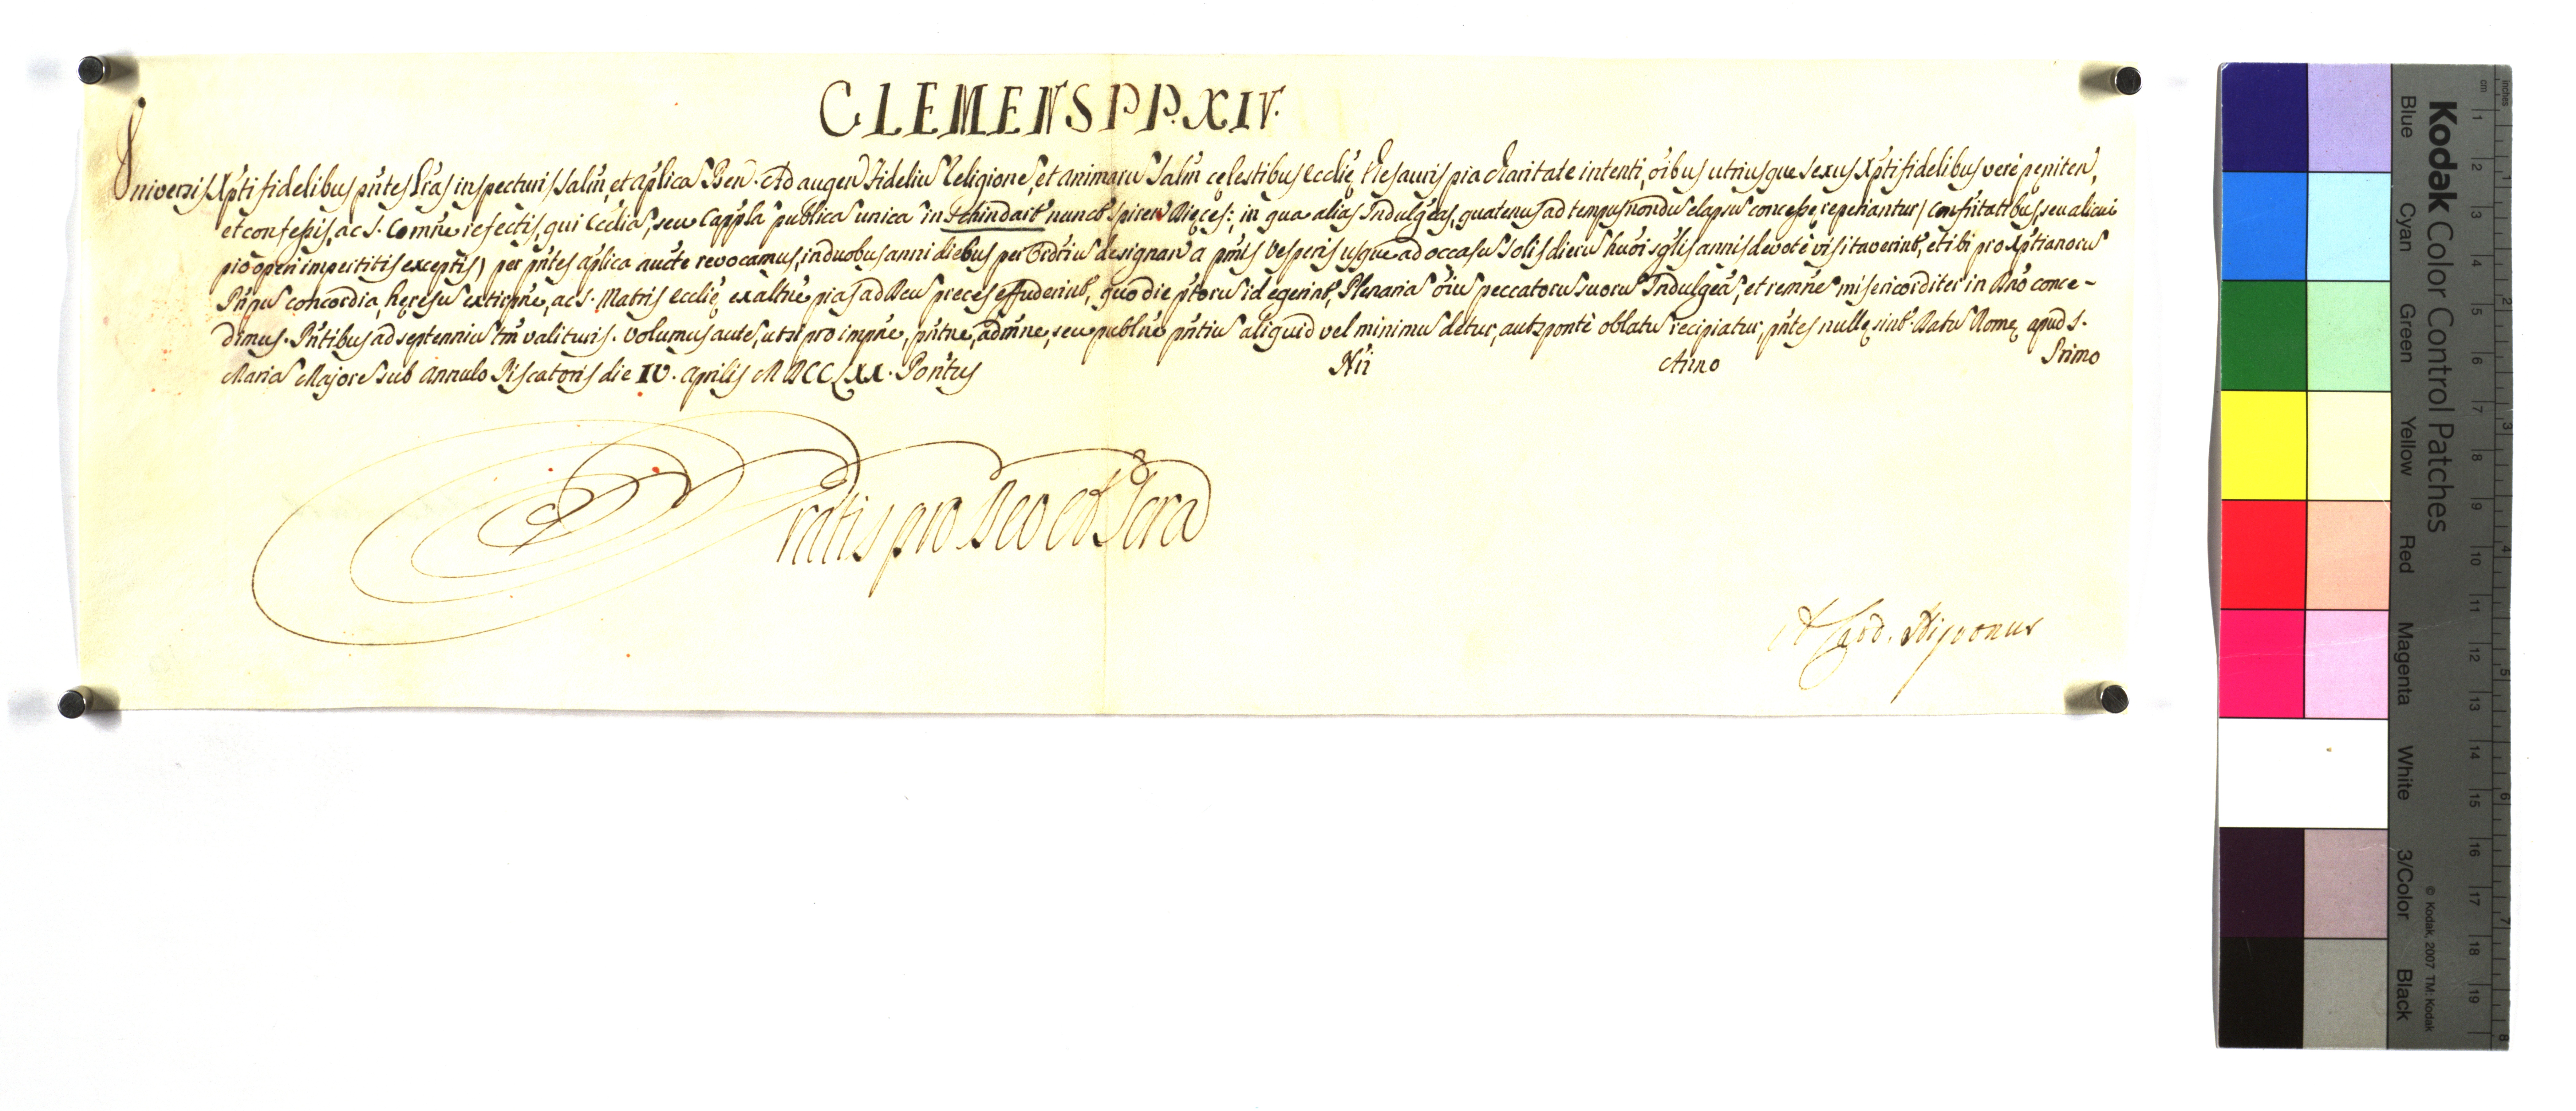 CLEMENS PP. XIV.
Universis Xpti fidelibus pñtes Lras inspecturis Salm̃, et aplicã Ben. Ad augen Fideliũ Religionẽ, et animarũ Salm̃ cęlestibus Ecclię thesauris pia charitate intenti, oĩbus utriusque sexus Xpti fidelibus verè pęniten,
et confeßis, ac S. Comñe refectis, qui Ecclia, seu Cappla publicã unicã in nunct Spiren Diȩces: in qua alias Indulgeãs, quatenus ad tempus nondũ elapsũ conceßę reperiantur) Confritatibus, seu alicui
pio operi impertitis exceptis) per pñtes aplica aucte revocamus, in duobus anni diebus per Ordriũ designan a pmis Vesperis usque ad occasũ Solis dierũ huõi sglis annis devotè visitaverint, et ibi pro Xptianorũ
Pñpũ concordia, hȩresũ extirpñe, ac S. Matris Ecclię exaltñe pias ad Deũ preces effuderint, quo die ptorũ id egerint, Plenariã oĩũ peccatorũ suorũ Indulgeã, et remñẽ misericorditer in Dño conce-
dimus. Pñtibus ad septenniũ tm̃ valituris. Volumus autẽ, ut si pro impñe, pñtne, admñe, seu publne pñtiũ aliquid vel minimũ detur, aut spontè oblatũ recipiatur, pñtes nullę sint. Datũ Romę apud S.
Mariã Majorẽ sub annulo Piscatoris die IV. Aprilis MDCCLXX. Pontus Nri Anno Primo
Gratis pro Deo et Scra
A Card. Nigronus
Kodak Color Control Patches
Blue Cyan Green Yellow Red Magenta White 3/Color Black
© Kodak, 2007 TM: Kodak
inches 1 2 3 4 5 6 7 8
cm 1 2 3 4 5 6 7 8 9 10 11 12 13 14 15 16 17 18 19